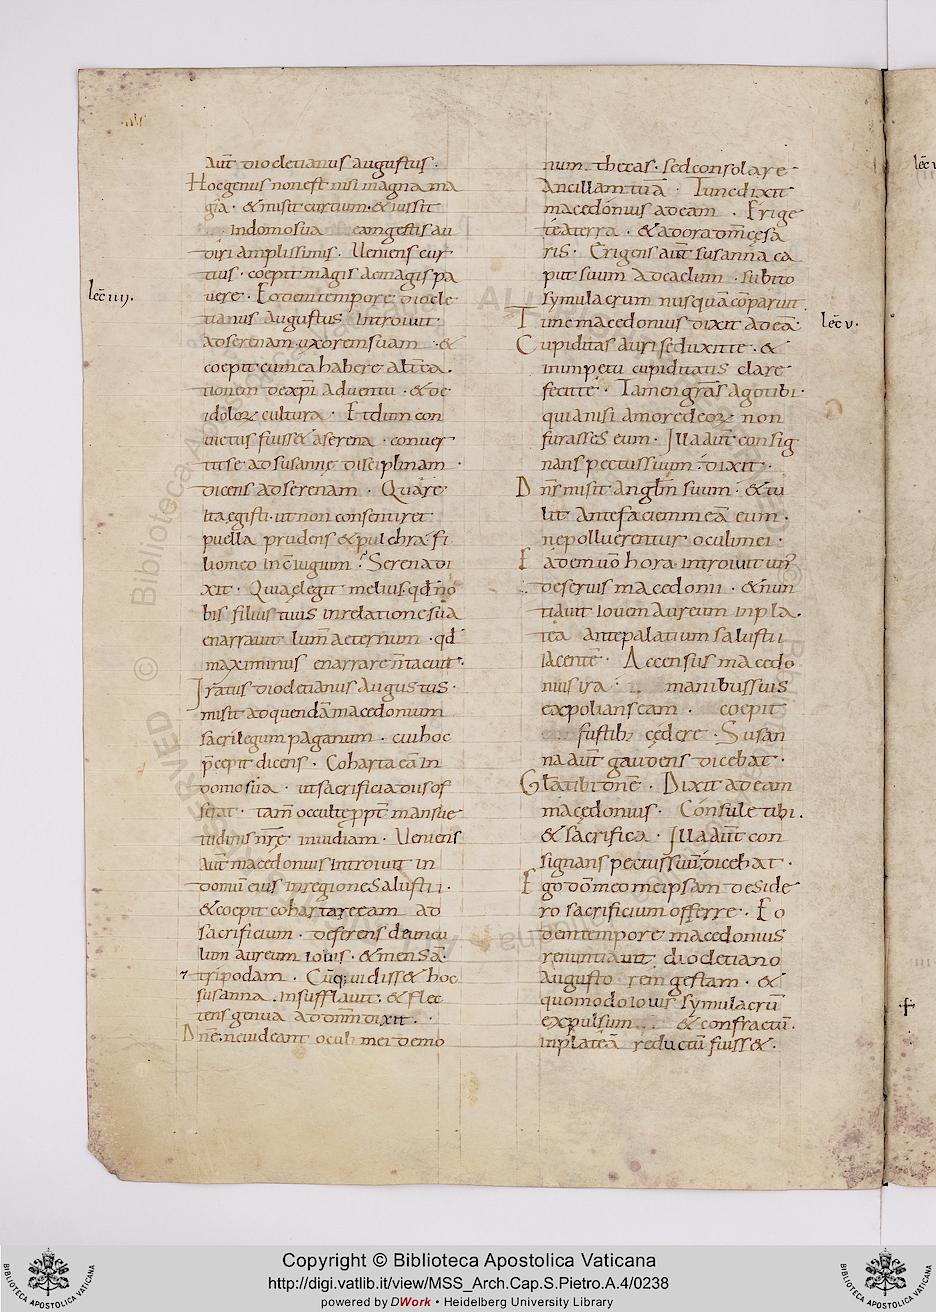 aut̄ dioclecianus augustus ·
Hoc genus non est nisi magna ma
gia · & misit curtium · & iussit
in domo sua cam gestis au
diri amplissimis · Ueniens cur
tius · coepit magis ac magis pa
uere · Eodem tempore diocle
lec̄ iiij.
tianus augustus introiuit
ad serenam uxorem suam · &
coepit cum ea habere alt̄ca
tionem de xp̄i aduentu · & de
idoloꝝ cultura · Et dum con
uictus fuiss& a serena · conuer
tit se ad susannę disciplinam ·
dicens ad serenam · Quare
ita egisti · ut non consentiret
puella prudens & pulchra · fi
lio meo in c̄iugium ? Serena di
xit · Quia elegit melius · qd̄ no
bis filius tuus in relatione sua
enarrauit lum̄ aeternum · qd̄
maximinus enarrare n̄ tacuit ·
Iratus dioclecianus augustus ·
misit ad quendā macedonium
sacrilegum paganum · cui hoc
p̄cepit dicens · Cohorta eā in
domo sua · ut sacrificia diis of
ferat · tam̄ occulte ppt̄ mansue
tudinis nr̄e inuidiam · Ueniens
aut̄ macedonius introiuit in
domū eius in regione Salustii ·
& coepit cohartare eam ad
sacrificium · deferens deuncu
lum aureum iouis · & mensā ·
⁊ tripodam · Cūq; uidiss& hoc
susanna · insufflauit · & flec
tens genua ad dn̄m dixit ·
Dn̄e · ne uideant oculi mei demo
num thecas · sed consolare
ancillam tuā · Tunc dixit
macedonius ad eam · Erige
te a terra · & adora dom̄ cęsa
ris · Erigens aut̄ susanna ca
put suum ad caelum · subito
symulacrum nusquā cōparuit
Tunc macedonius dixit ad eā ·
lec̄ v ·
Cupiditas auri seduxit te · &
inimpetu cupiditatis clare
fecit te · Tamen grās ago tibi ·
quia nisi amore deoꝝ non
furasses eum · Illa aut̄ consig
nans pectus suum · dixit ·
Dn̄s misit anglm̄ suum · & tu
lit ante faciem meā eum ·
ne polluerentur oculi mei ·
Eadem ūo hora introiuit un'
de seruis macedonii · & nun
tiauit iouem aureum in pla
tea ante palatium salustii
iacentē · Accensus macedo
nius ira manibus suis
expolians eam · coepit
fustib; cędere · Susan
na aut̄ gaudens dicebat ·
Gl̄a tibi dn̄e · Dixit ad eam
macedonius · Consule tibi ·
& sacrifica · Illa aut̄ con
signans pectus suū, dicebat ·
Ego dō meo me ipsam deside
ro sacrificium offerre · Eo
dem tempore macedonius
renuntiauit diocletiano
augusto rem gestam · &
quomodo iouis symulacrū
expulsum & confractū ·
in plateā reductū fuiss& ·
Copyright © Biblioteca Apostolica Vaticana
http://digi.vatlib.it/view/MSS_Arch.Cap.S.Pietro.A.4/0238
powered by DWork • Heidelberg University Library